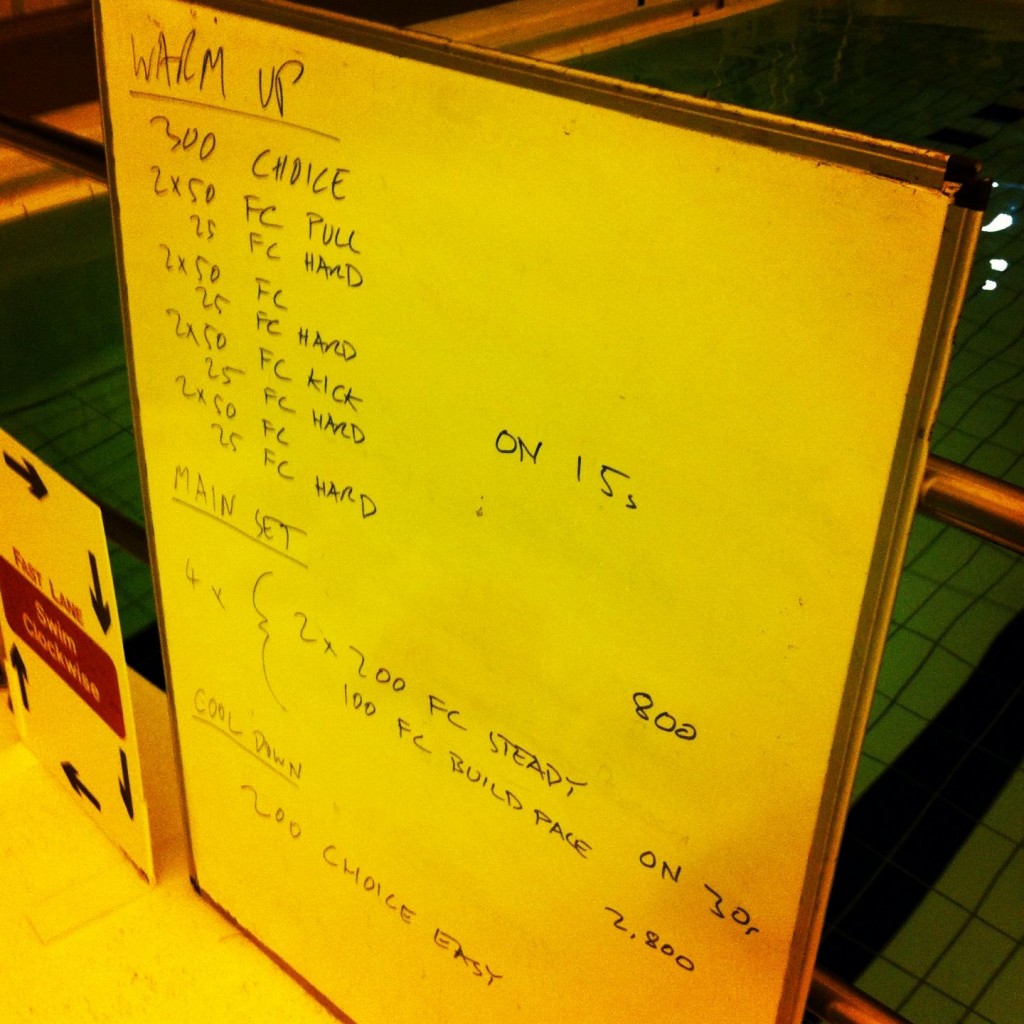 WARM UP
300 CHOICE
2x50 FC PULL
25 FC HARD
2x50 FC
25 FC HARD
2x50 FC KICK
25 FC HARD
2x50 FC
25 FC HARD
ON 15s
800
MAIN SET
4 x { 2 x 200 FC STEADY
100 FC BUILD PACE ON 30s
2,800
COOL DOWN
200 CHOICE EASY
FAST LANE
Swim
Clockwise